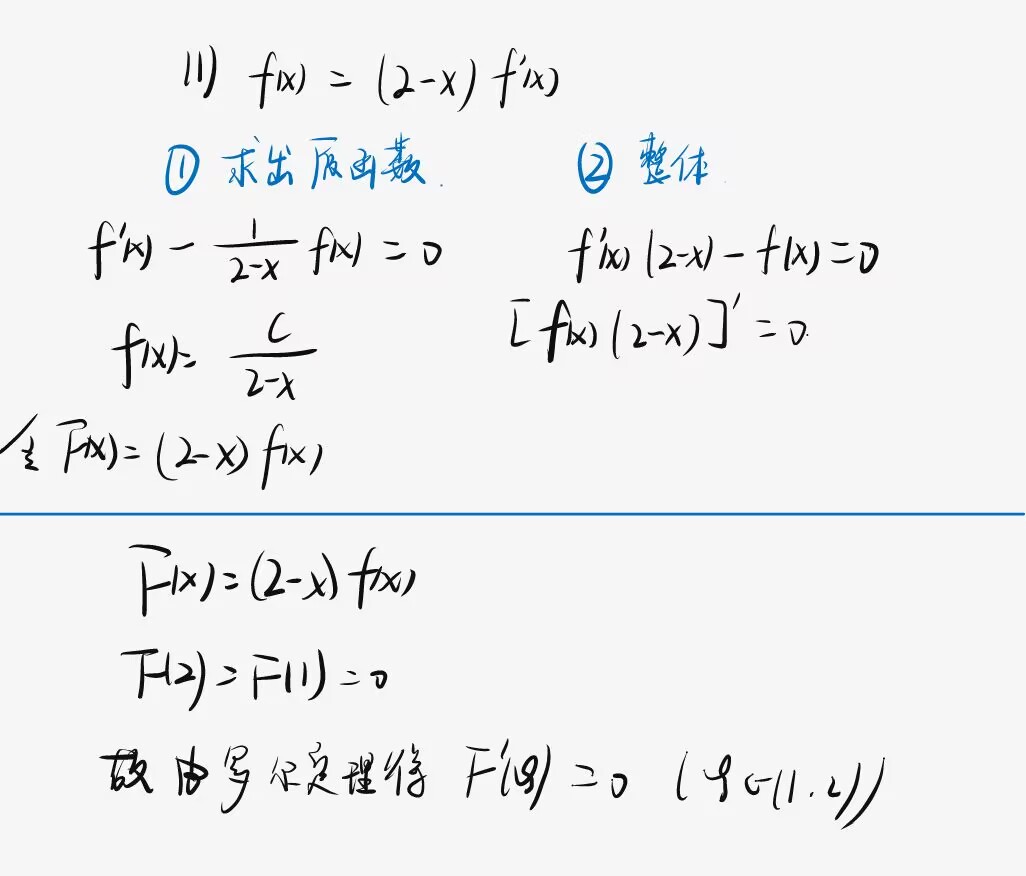 (1) f(x) = (2-x) f'(x)
① 求出原函数.
f'(x) - \frac{1}{2-x} f(x) = 0
f(x) = \frac{C}{2-x}
令 F(x) = (2-x) f(x)
② 整体
f'(x) (2-x) - f(x) = 0
[f(x) (2-x)]' = 0
F(x) = (2-x) f(x)
F(2) = F(1) = 0
故由罗尔定理得 F'(φ) = 0 (φ∈(1.2))